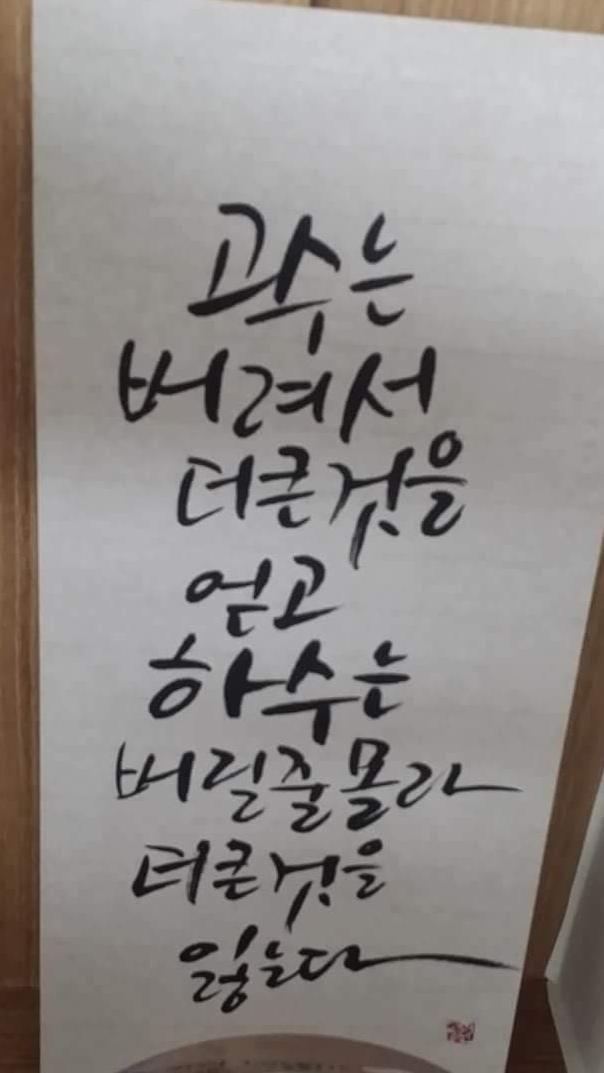 고수는
버려서
더큰것을
얻고
하수는
버릴줄몰라
더큰것을
잃는다